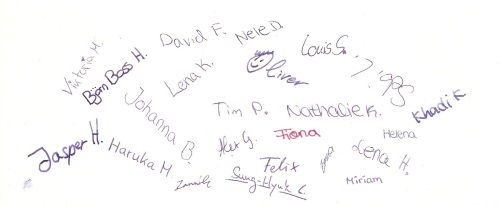 Viktoria M.
Björn Boss H.
David F.
Nele D.
Louis G.
Lena K.
Oliver
Johanna B.
Tim P.
Nathalie K.
Khadi K
Jasper H.
Haruka M.
Alex G.
Fiona
Helena
Lena H.
Felix
Sung-Hyuk L.
Miriam